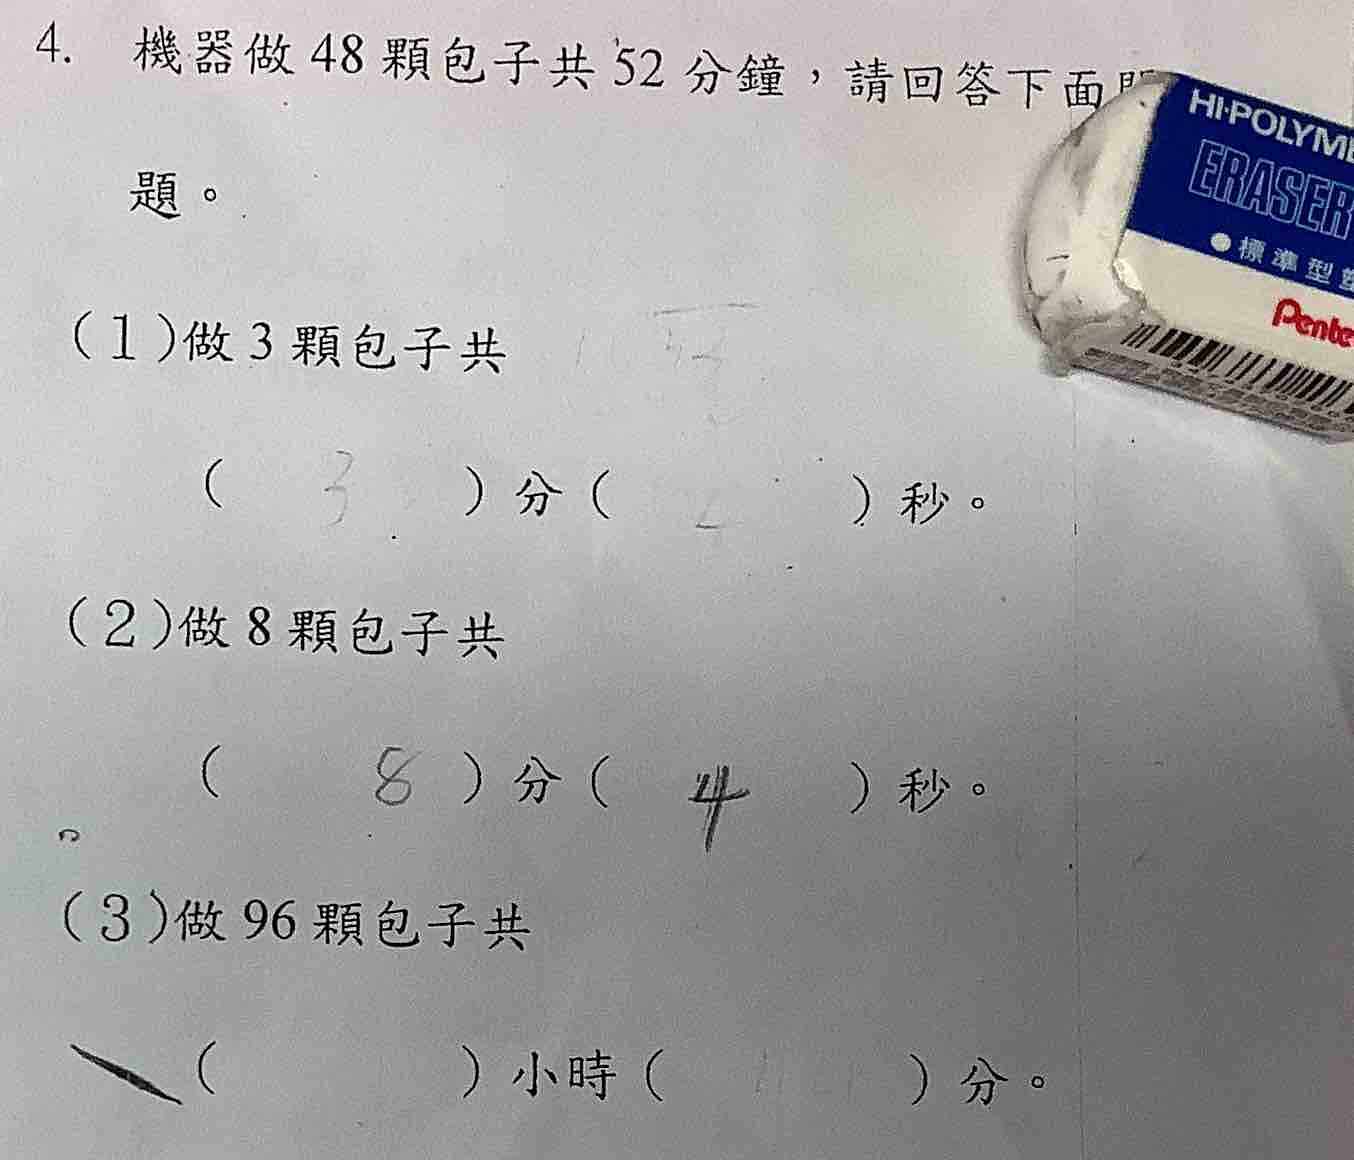 4. 機器做 48 顆包子共 52 分鐘，請回答下面
題。
HI-POLYM
ERASER
●標準型
Pente
(1)做 3 顆包子共
( 3 ) 分 ( ) 秒。
(2)做 8 顆包子共
( 8 ) 分 ( 4 ) 秒。
(3)做 96 顆包子共
( ) 小時 ( ) 分。